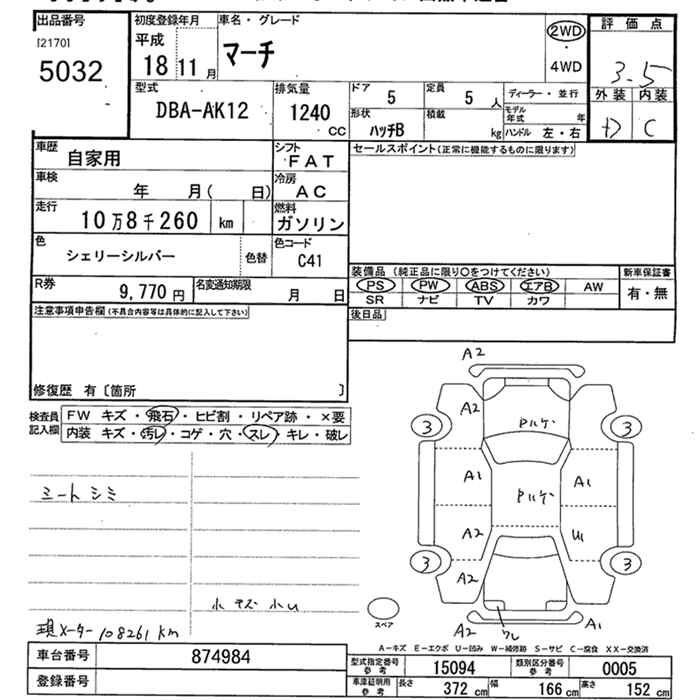 出品番号 初度登録年月 車名・グレード 評価点
[2170] 平成 マーチ 2WD
5032 18 11月 4WD 3.5
型式 排気量 ドア 定員 ディーラー・並行 外装 内装
DBA-AK12 1240 5 5人 モデル年式 年
CC 形状 積載 D C
ハッチB kg ハンドル 左・右
車歴 自家用 シフト FAT セールスポイント(正常に機能するものに限ります)
車検 年 月( 日) 冷房 AC
走行 10万8千260 km 燃料 ガソリン
色 シェリーシルバー 色替 色コード C41
装備品 (純正品に限り〇をつけてください) 新車保証書
R券 9,770円 名変通知期限 月 日 PS PW ABS エアB AW 有・無
SR ナビ TV カワ
注意事項申告欄(不具合内容等は具体的に記入して下さい) 後日品
修復歴 有〔箇所 〕
検査員 FW キズ・飛石・ヒビ割・リペア跡・×要
記入欄 内装 キズ・汚レ・コゲ・穴・スレ・キレ・破レ
A2
A2 Pルケ
3 3
A1 Pルケ A1
シートシミ
A2 U1
3 3
A2
小キズ 小U
スペア
ワレ
A2 A1
現メーター108261km
A-キズ E-エクボ U-凹み W-補修跡 S-サビ C-腐食 XX-交換済
車台番号 874984 型式指定番号 参考 15094 類別区分番号 参考 0005
登録番号 車庫証明用 参考 長さ 372 cm 幅 166 cm 高さ 152 cm